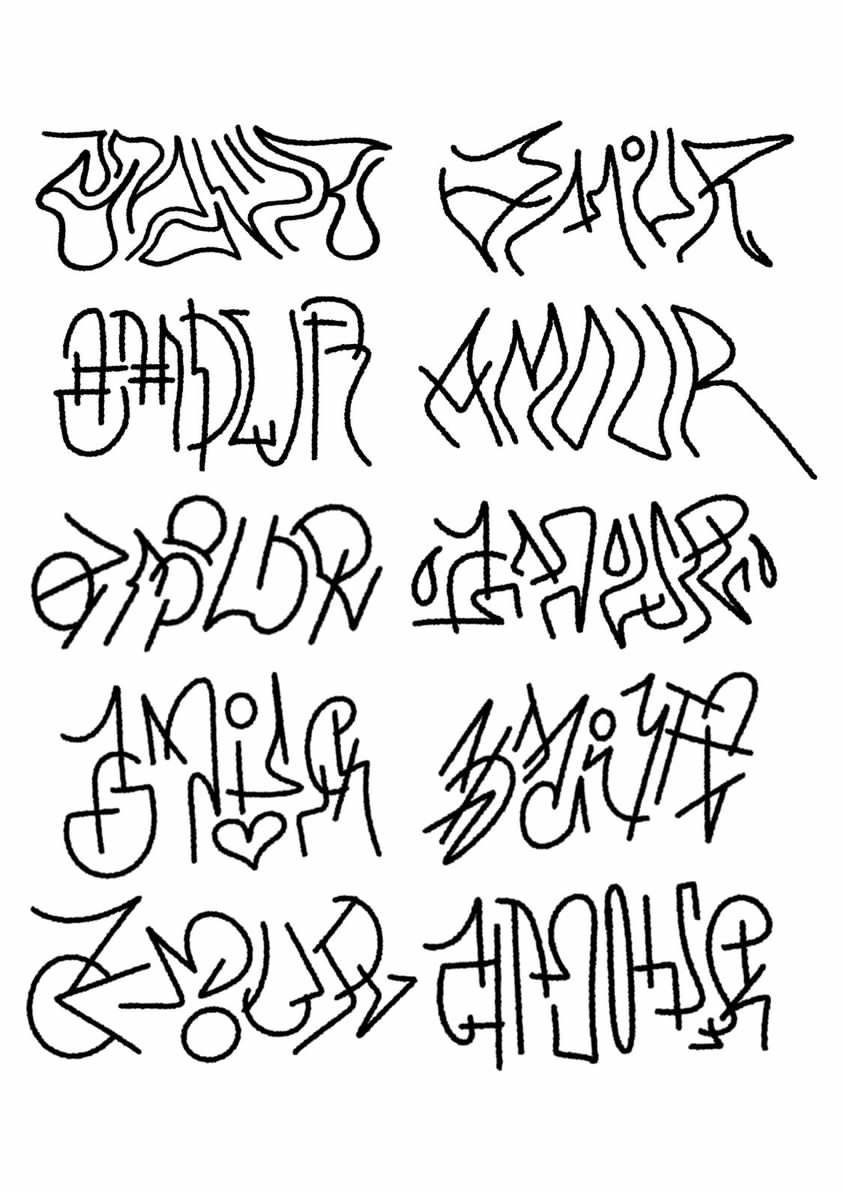 AMOUR AMOUR
AMOUR AMOUR
AMOUR AMOUR
AMOUR AMOUR
AMOUR AMOUR